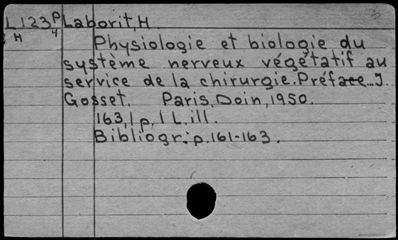 L123P Laborit, H
H 4
Physiologie et biologie du
système nerveux végétatif au
service de la chirurgie. Préface J.
Gosset. Paris, Doin, 1950.
163,1 p. 1 L. ill.
Bibliogr: p. 161-163.